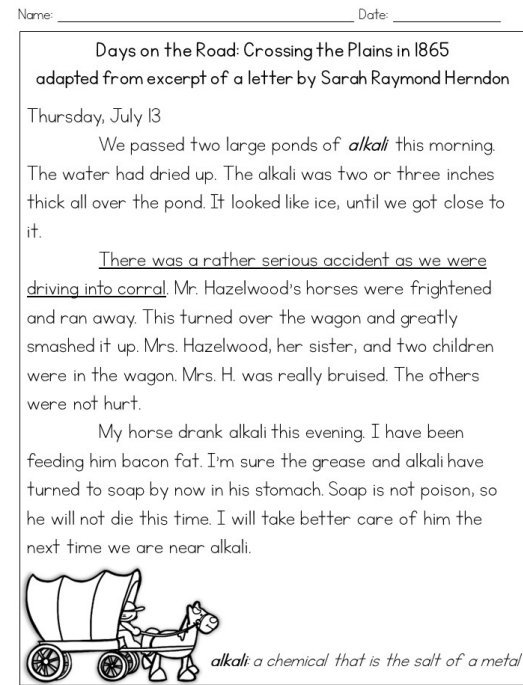 Name: ____________________ Date: ____________
Days on the Road: Crossing the Plains in 1865
adapted from excerpt of a letter by Sarah Raymond Herndon
Thursday, July 13
We passed two large ponds of alkali this morning.
The water had dried up. The alkali was two or three inches
thick all over the pond. It looked like ice, until we got close to
it.
There was a rather serious accident as we were
driving into corral. Mr. Hazelwood's horses were frightened
and ran away. This turned over the wagon and greatly
smashed it up. Mrs. Hazelwood, her sister, and two children
were in the wagon. Mrs. H. was really bruised. The others
were not hurt.
My horse drank alkali this evening. I have been
feeding him bacon fat. I'm sure the grease and alkali have
turned to soap by now in his stomach. Soap is not poison, so
he will not die this time. I will take better care of him the
next time we are near alkali.
alkali: a chemical that is the salt of a metal